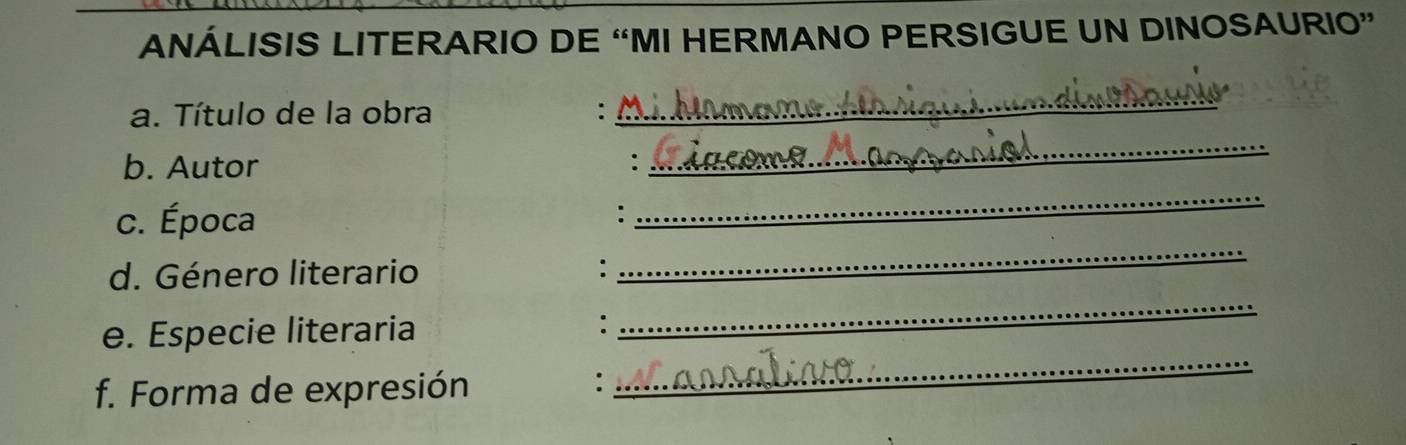 ANÁLISIS LITERARIO DE “MI HERMANO PERSIGUE UN DINOSAURIO”
a. Título de la obra : Mi hermano persigui un dinosaurio
b. Autor : Giacomo Mazzariol
c. Época :
d. Género literario :
e. Especie literaria :
f. Forma de expresión : Narrativo